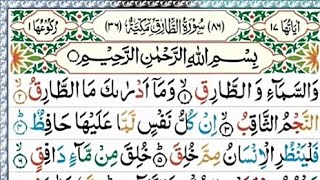 اٰيَاتُهَا ١٧ (٨٦) سُوْرَةُ الطَّارِقِ مَكِّيَّةٌ (٣٦) رُكُوْعُهَا ١
بِسْمِ اللّٰهِ الرَّحْمٰنِ الرَّحِيْمِ
وَالسَّمَآءِ وَالطَّارِقِ ۙ﴿١﴾ وَمَآ اَدْرٰىكَ مَا الطَّارِقُ ۙ﴿٢﴾
النَّجْمُ الثَّاقِبُ ۙ﴿٣﴾ اِنْ كُلُّ نَفْسٍ لَّمَّا عَلَيْهَا حَافِظٌ ؕ﴿٤﴾
فَلْيَنْظُرِ الْاِنْسَانُ مِمَّ خُلِقَ ؕ﴿٥﴾ خُلِقَ مِنْ مَّآءٍ دَافِقٍ ۙ﴿٦﴾